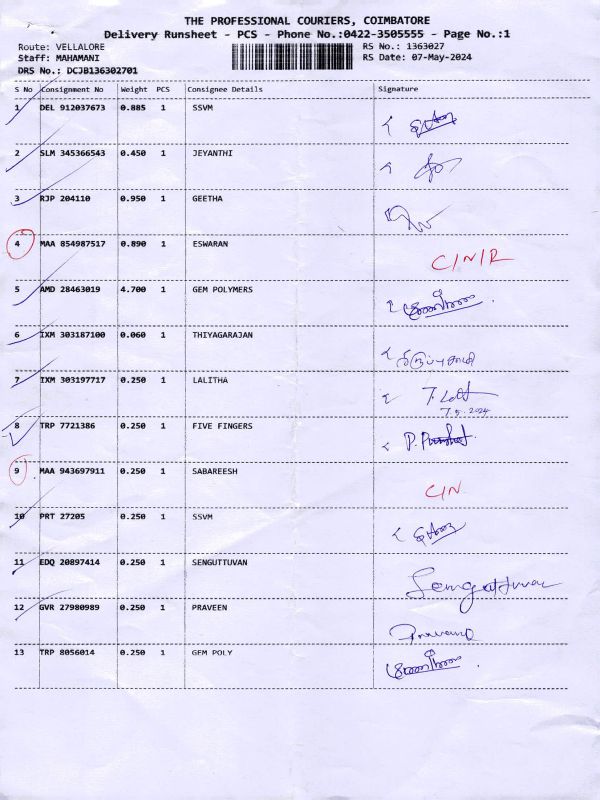 THE PROFESSIONAL COURIERS, COIMBATORE
Delivery Runsheet - PCS - Phone No.:0422-3505555 - Page No.:1
Route: VELLALORE RS No.: 1363027
Staff: MAHAMANI RS Date: 07-May-2024
DRS No.: DCJB136302701
S No Consignment No Weight PCS Consignee Details Signature
1 DEL 912037673 0.885 1 SSVM
2 SLM 345366543 0.450 1 JEYANTHI
3 RJP 204110 0.950 1 GEETHA
4 MAA 854987517 0.890 1 ESWARAN
C/N/R
5 AMD 28463019 4.700 1 GEM POLYMERS
6 IXM 303187100 0.060 1 THIYAGARAJAN
7 IXM 303197717 0.250 1 LALITHA
7.5.2024
8 TRP 7721386 0.250 1 FIVE FINGERS
9 MAA 943697911 0.250 1 SABAREESH
C/N
10 PRT 27205 0.250 1 SSVM
11 EDQ 20897414 0.250 1 SENGUTTUVAN
12 GVR 27980989 0.250 1 PRAVEEN
13 TRP 8056014 0.250 1 GEM POLY